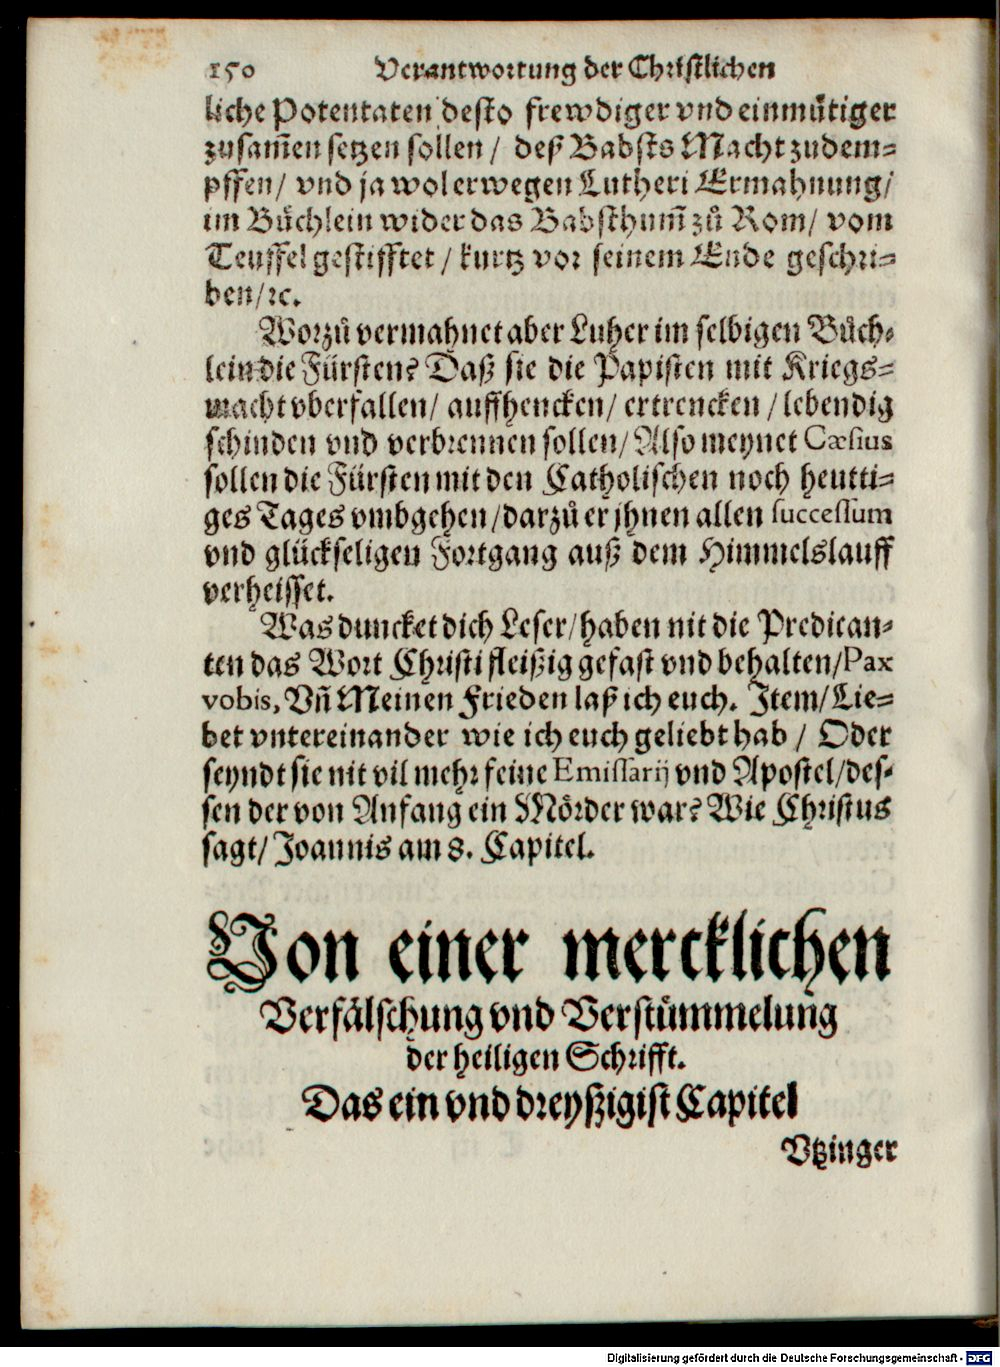 150 Verantwortung der Christlichen
liche Potentaten desto frewdiger vnd einmuͤtiger
zusam̃en setzen sollen / deß Babsts Macht zudem⸗
pffen / vnd ja wol erwegen Lutheri Ermahnung /
im Buͤchlein wider das Babsthum̃ zuͦ Rom / vom
Teuffel gestifftet / kurtz vor seinem Ende geschri⸗
ben / ꝛc.
Worzuͦ vermahnet aber Luher im selbigen Buͤch⸗
lein die Fürsten? Daß sie die Papisten mit Kriegs⸗
macht vberfallen / auffhencken / ertrencken / lebendig
schinden vnd verbrennen sollen / Also meynet Cæsius
sollen die Fürsten mit den Catholischen noch heutti⸗
ges Tages vmbgehen / darzuͦ er jhnen allen successum
vnd glückseligen Fortgang auß dem Himmelslauff
verheisset.
Was duncket dich Leser / haben nit die Predican⸗
ten das Wort Christi fleißig gefast vnd behalten / Pax
vobis, Vñ Meinen Frieden laß ich euch. Item / Lie⸗
bet vntereinander wie ich euch geliebt hab / Oder
seyndt sie nit vil mehr seine Emissarij vnd Apostel / des⸗
sen der von Anfang ein Moͤrder war? Wie Christus
sagt / Joannis am 8. Capitel.
Von einer mercklichen
Verfaͤlschung vnd Verstuͤmmelung
der heiligen Schrifft.
Das ein vnd dreyßigist Capitel
Vtzinger
Digitalisierung gefördert durch die Deutsche Forschungsgemeinschaft - DFG